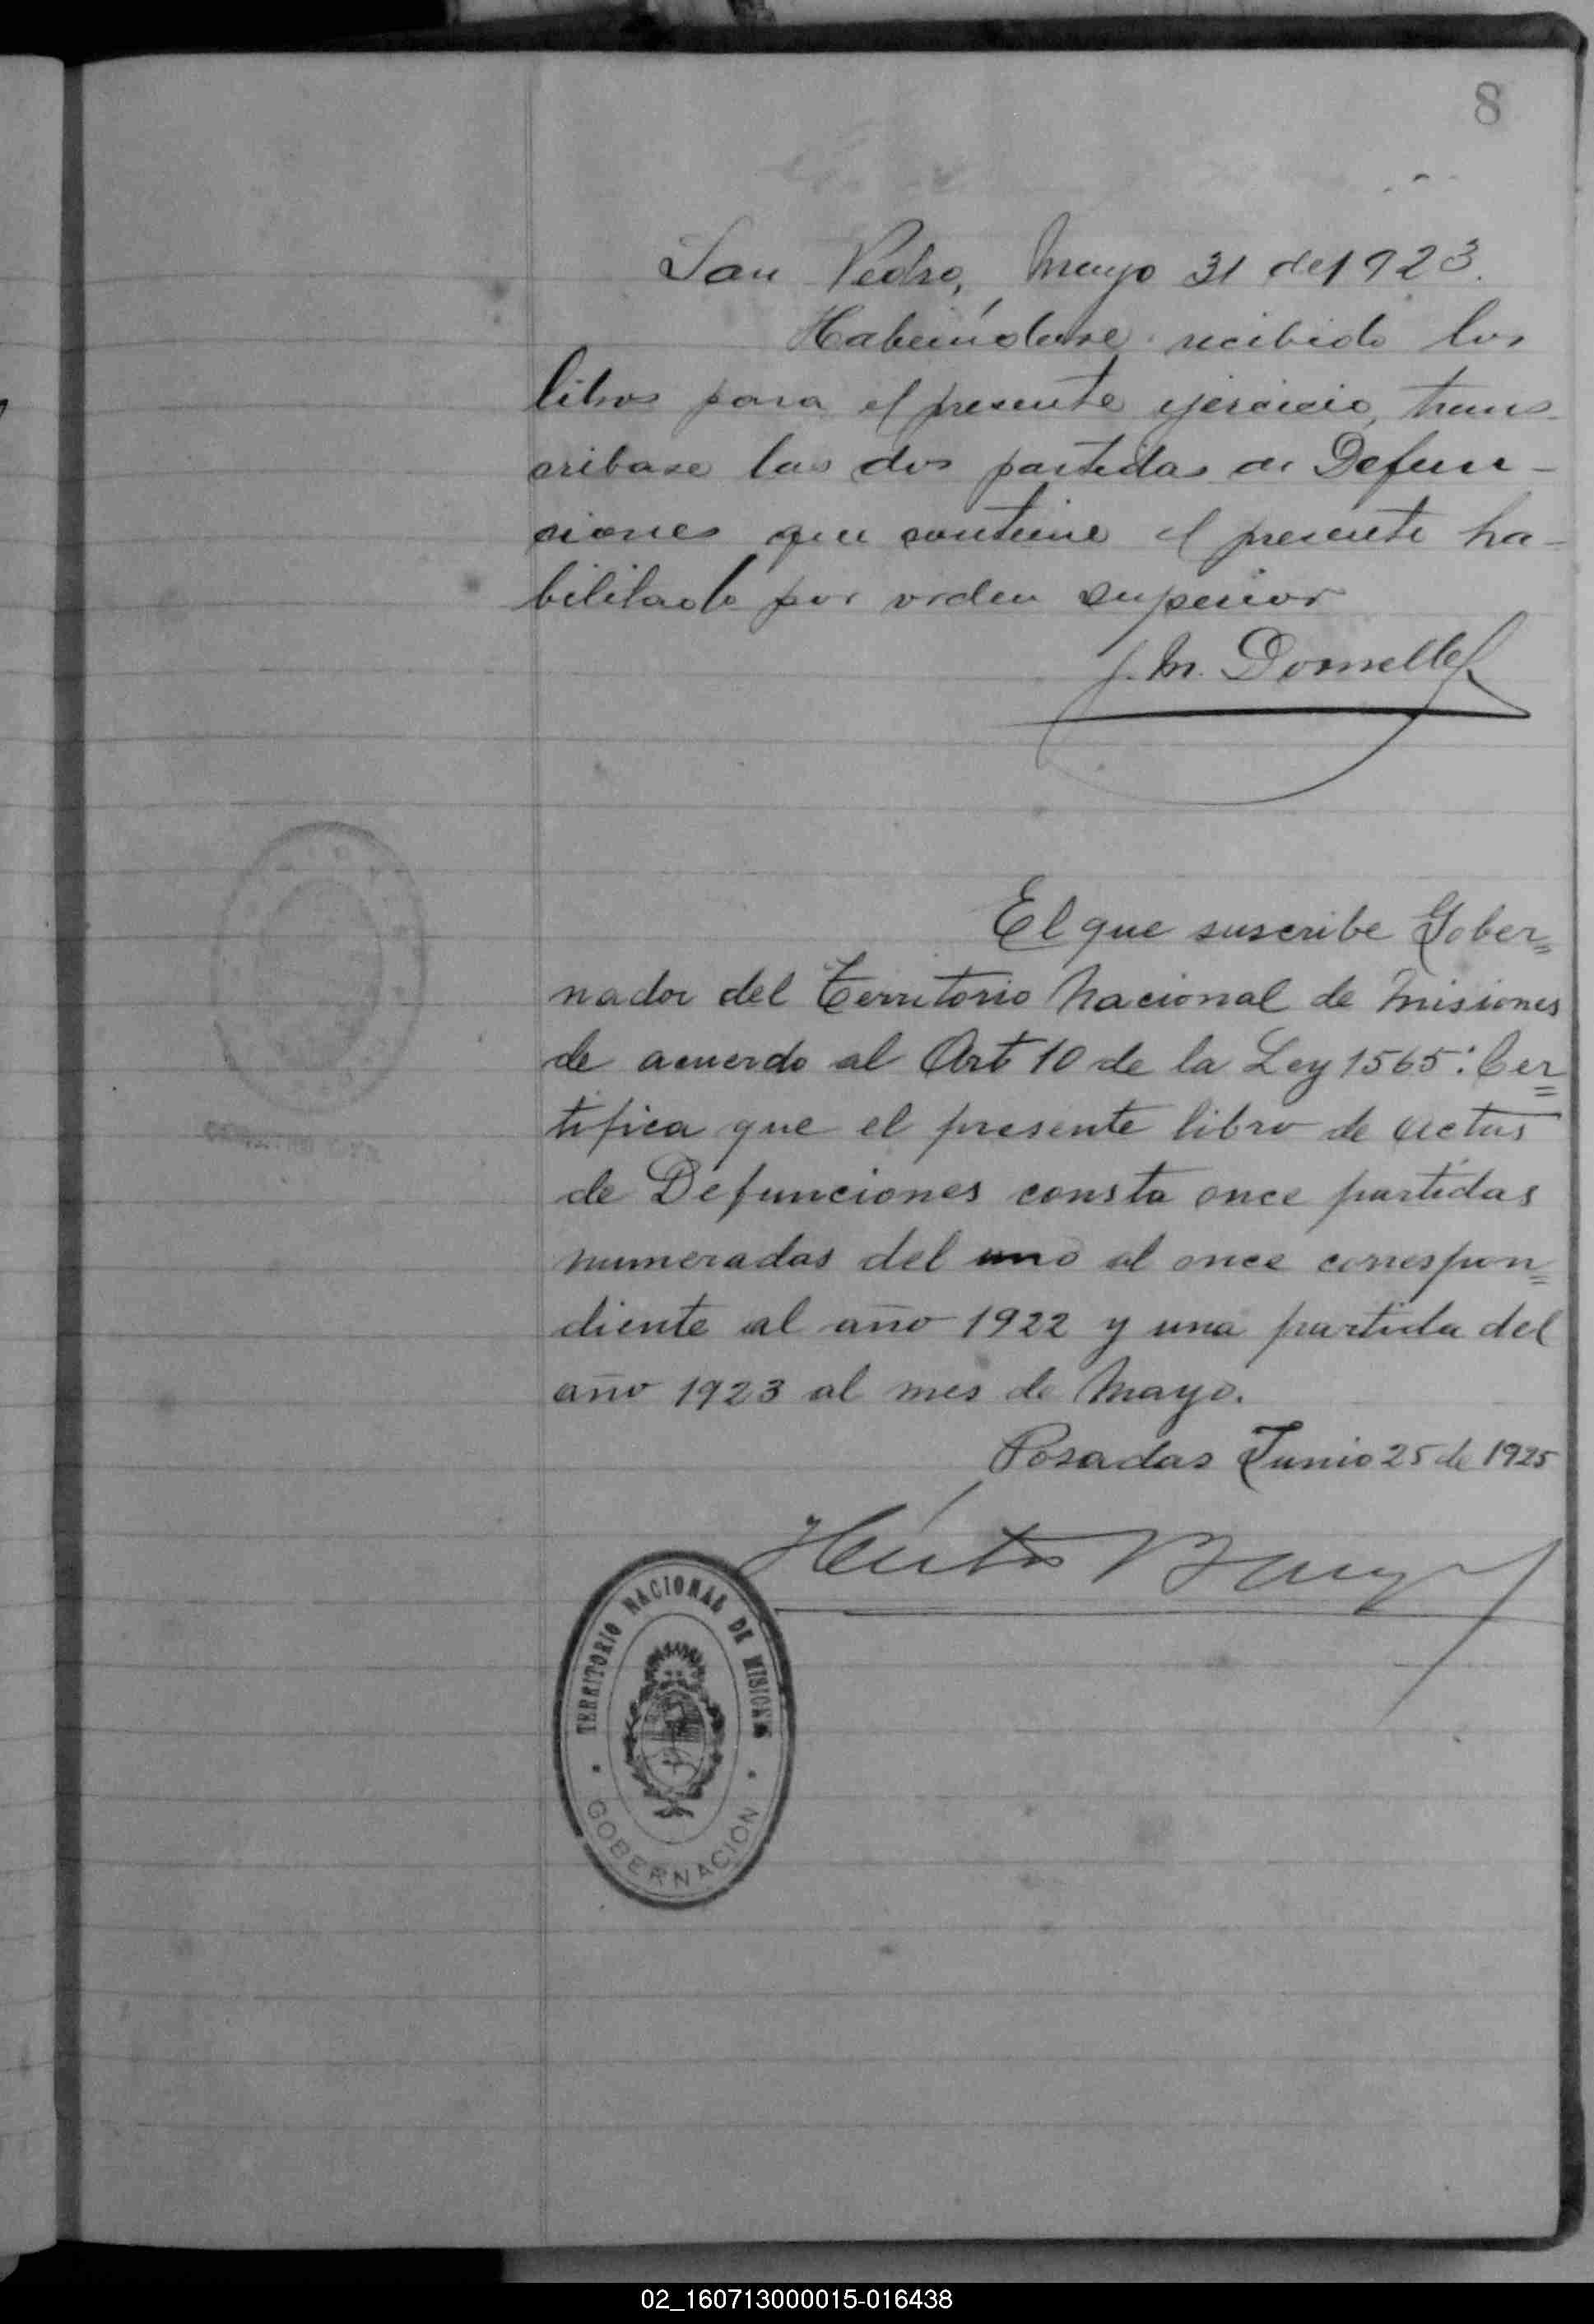 8
San Pedro, Mayo 31 de 1923.
Habeindose recibido los
libros para el presente ejercicio, trans-
cribase las dos partidas de Defun-
ciones que contiene el presente ha-
bilitado por orden superior
J. M.
El que suscribe Gober=
nador del Territorio Nacional de Misiones
de acuerdo al Art 10 de la Ley 1565: Cer=
tifica que el presente libro de actas
de Defunciones consta once partidas
numeradas del uno al once correspon=
diente al año 1922 y una partida del
año 1923 al mes de Mayo.
Posadas Junio 25 de 1925
Héctor
TERRITORIO NACIONAL DE MISIONES
GOBERNACION
02_160713000015-016438